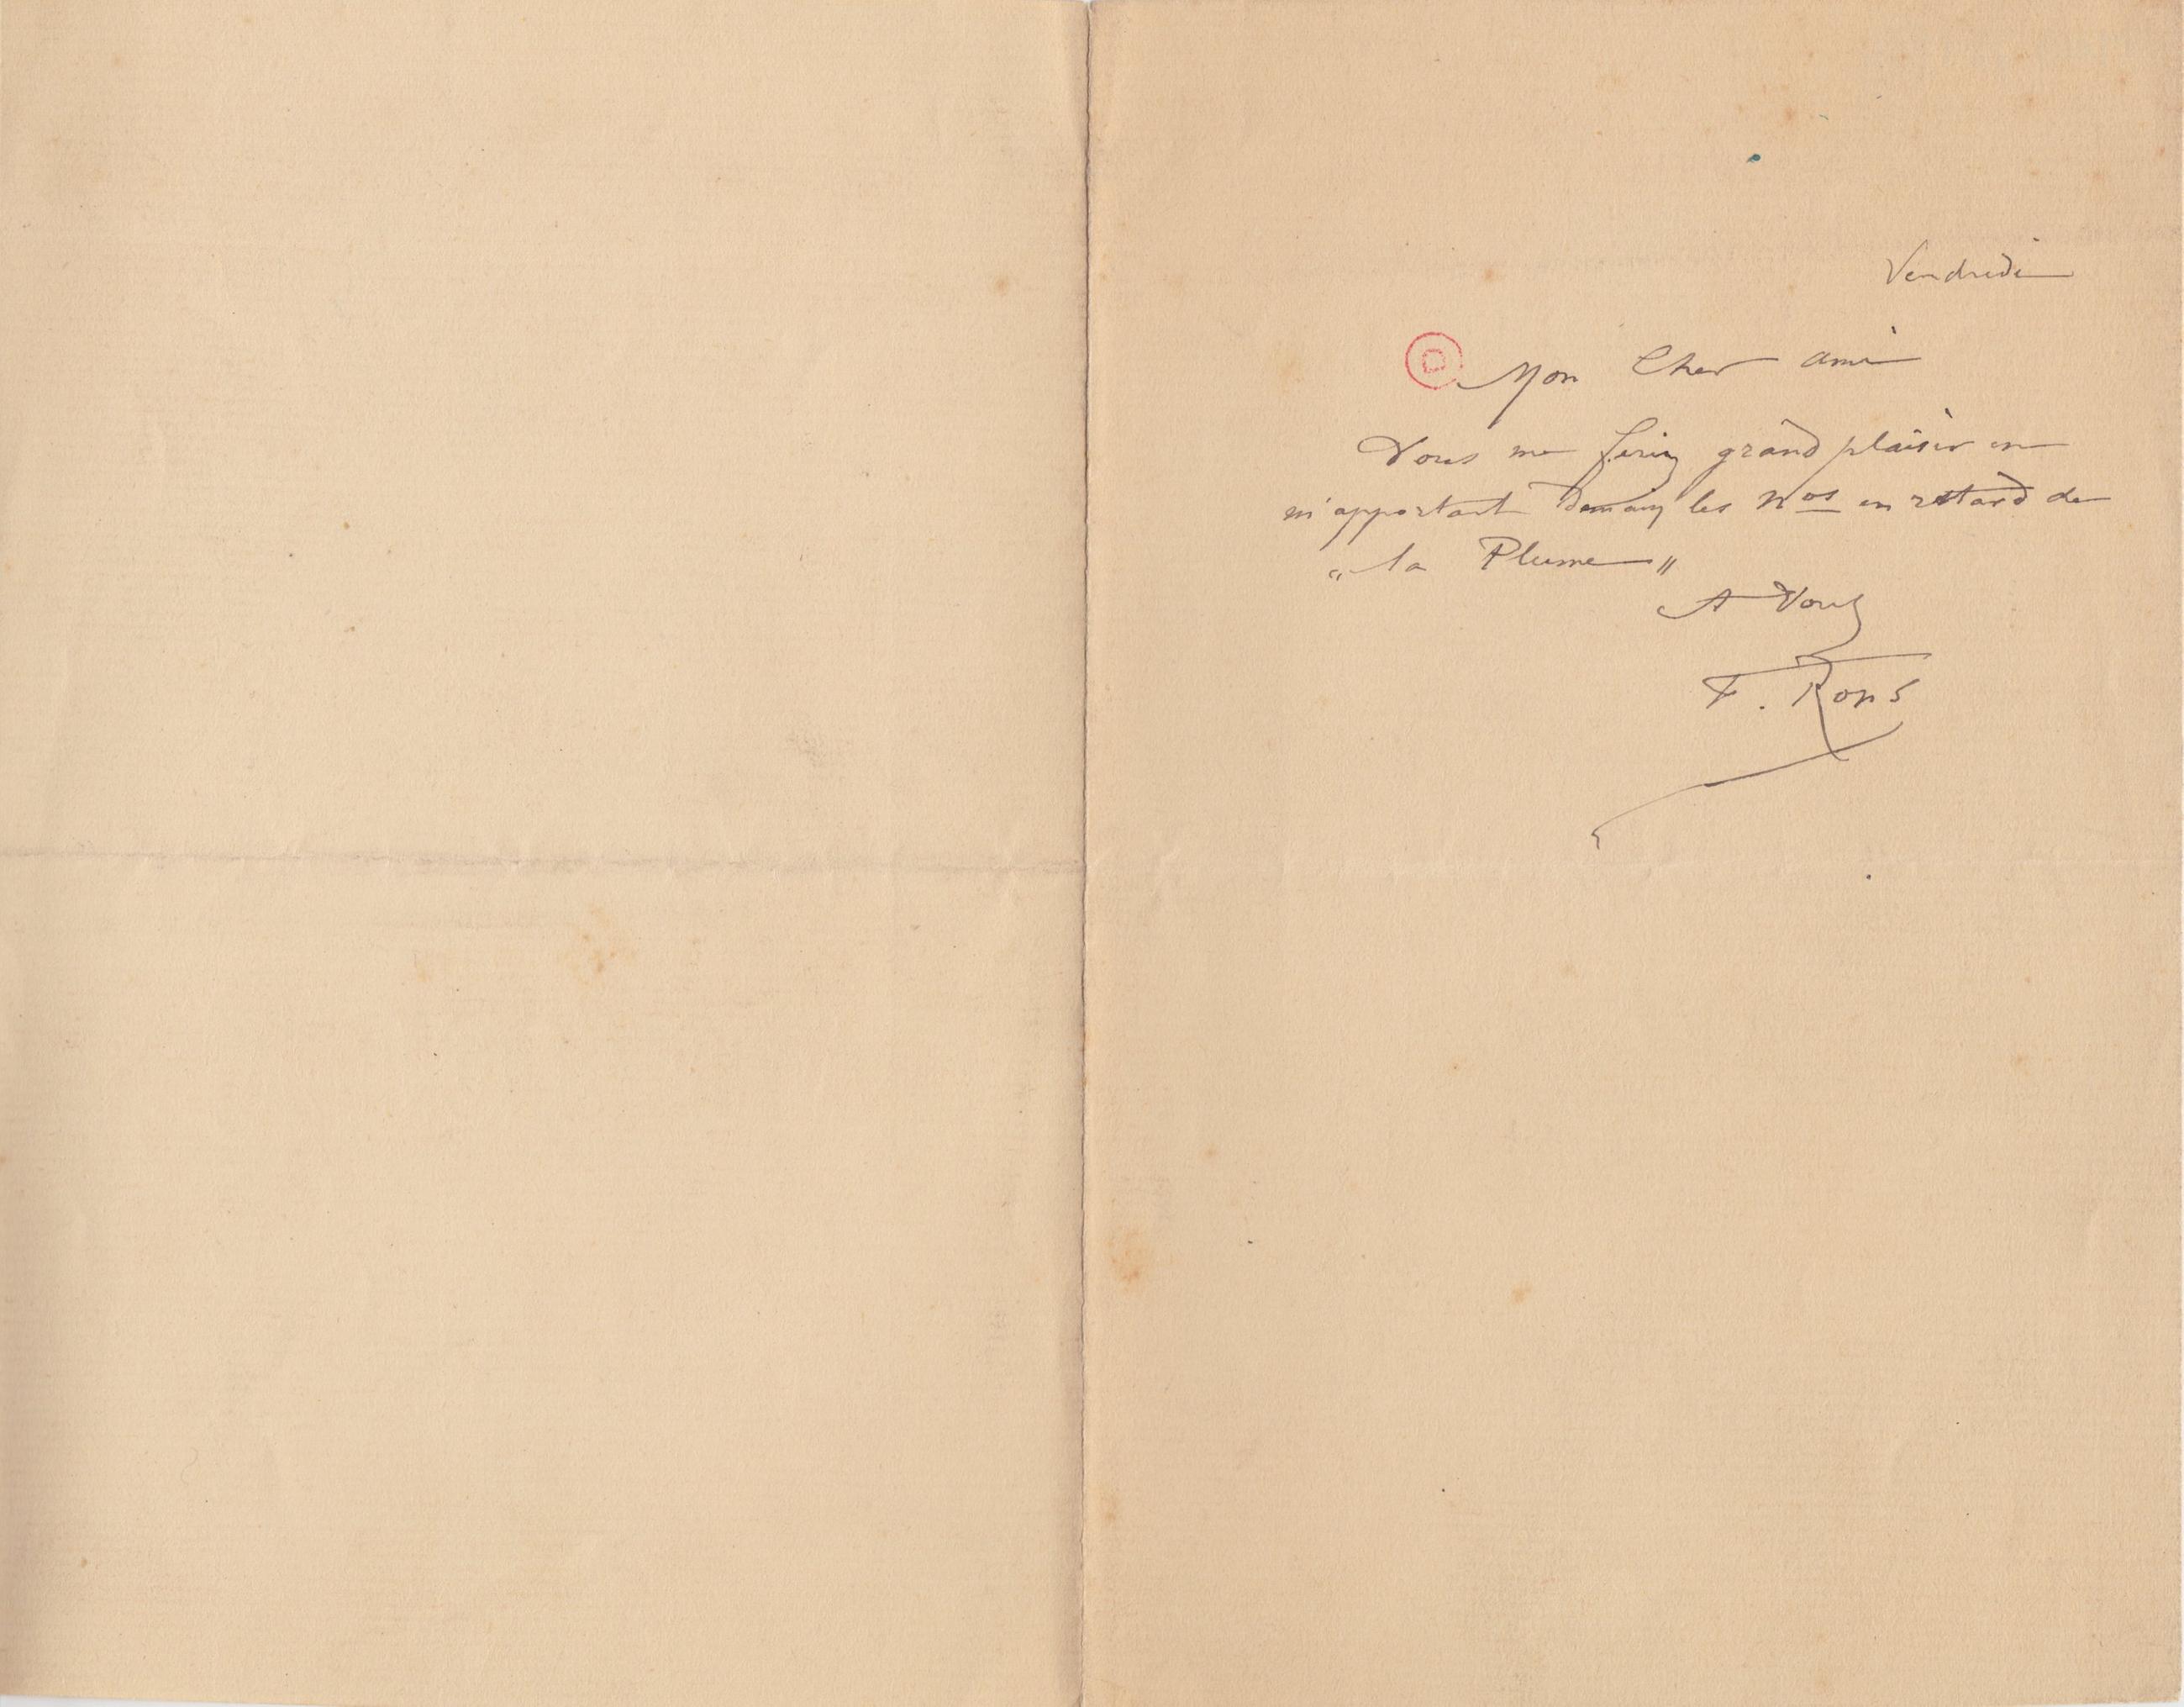 Vendredi
Mon Cher ami
Vous me feriez grand plaisir en
m'apportant Demain les Nos en retard de
"la Plume"
A Vous
F. Rops